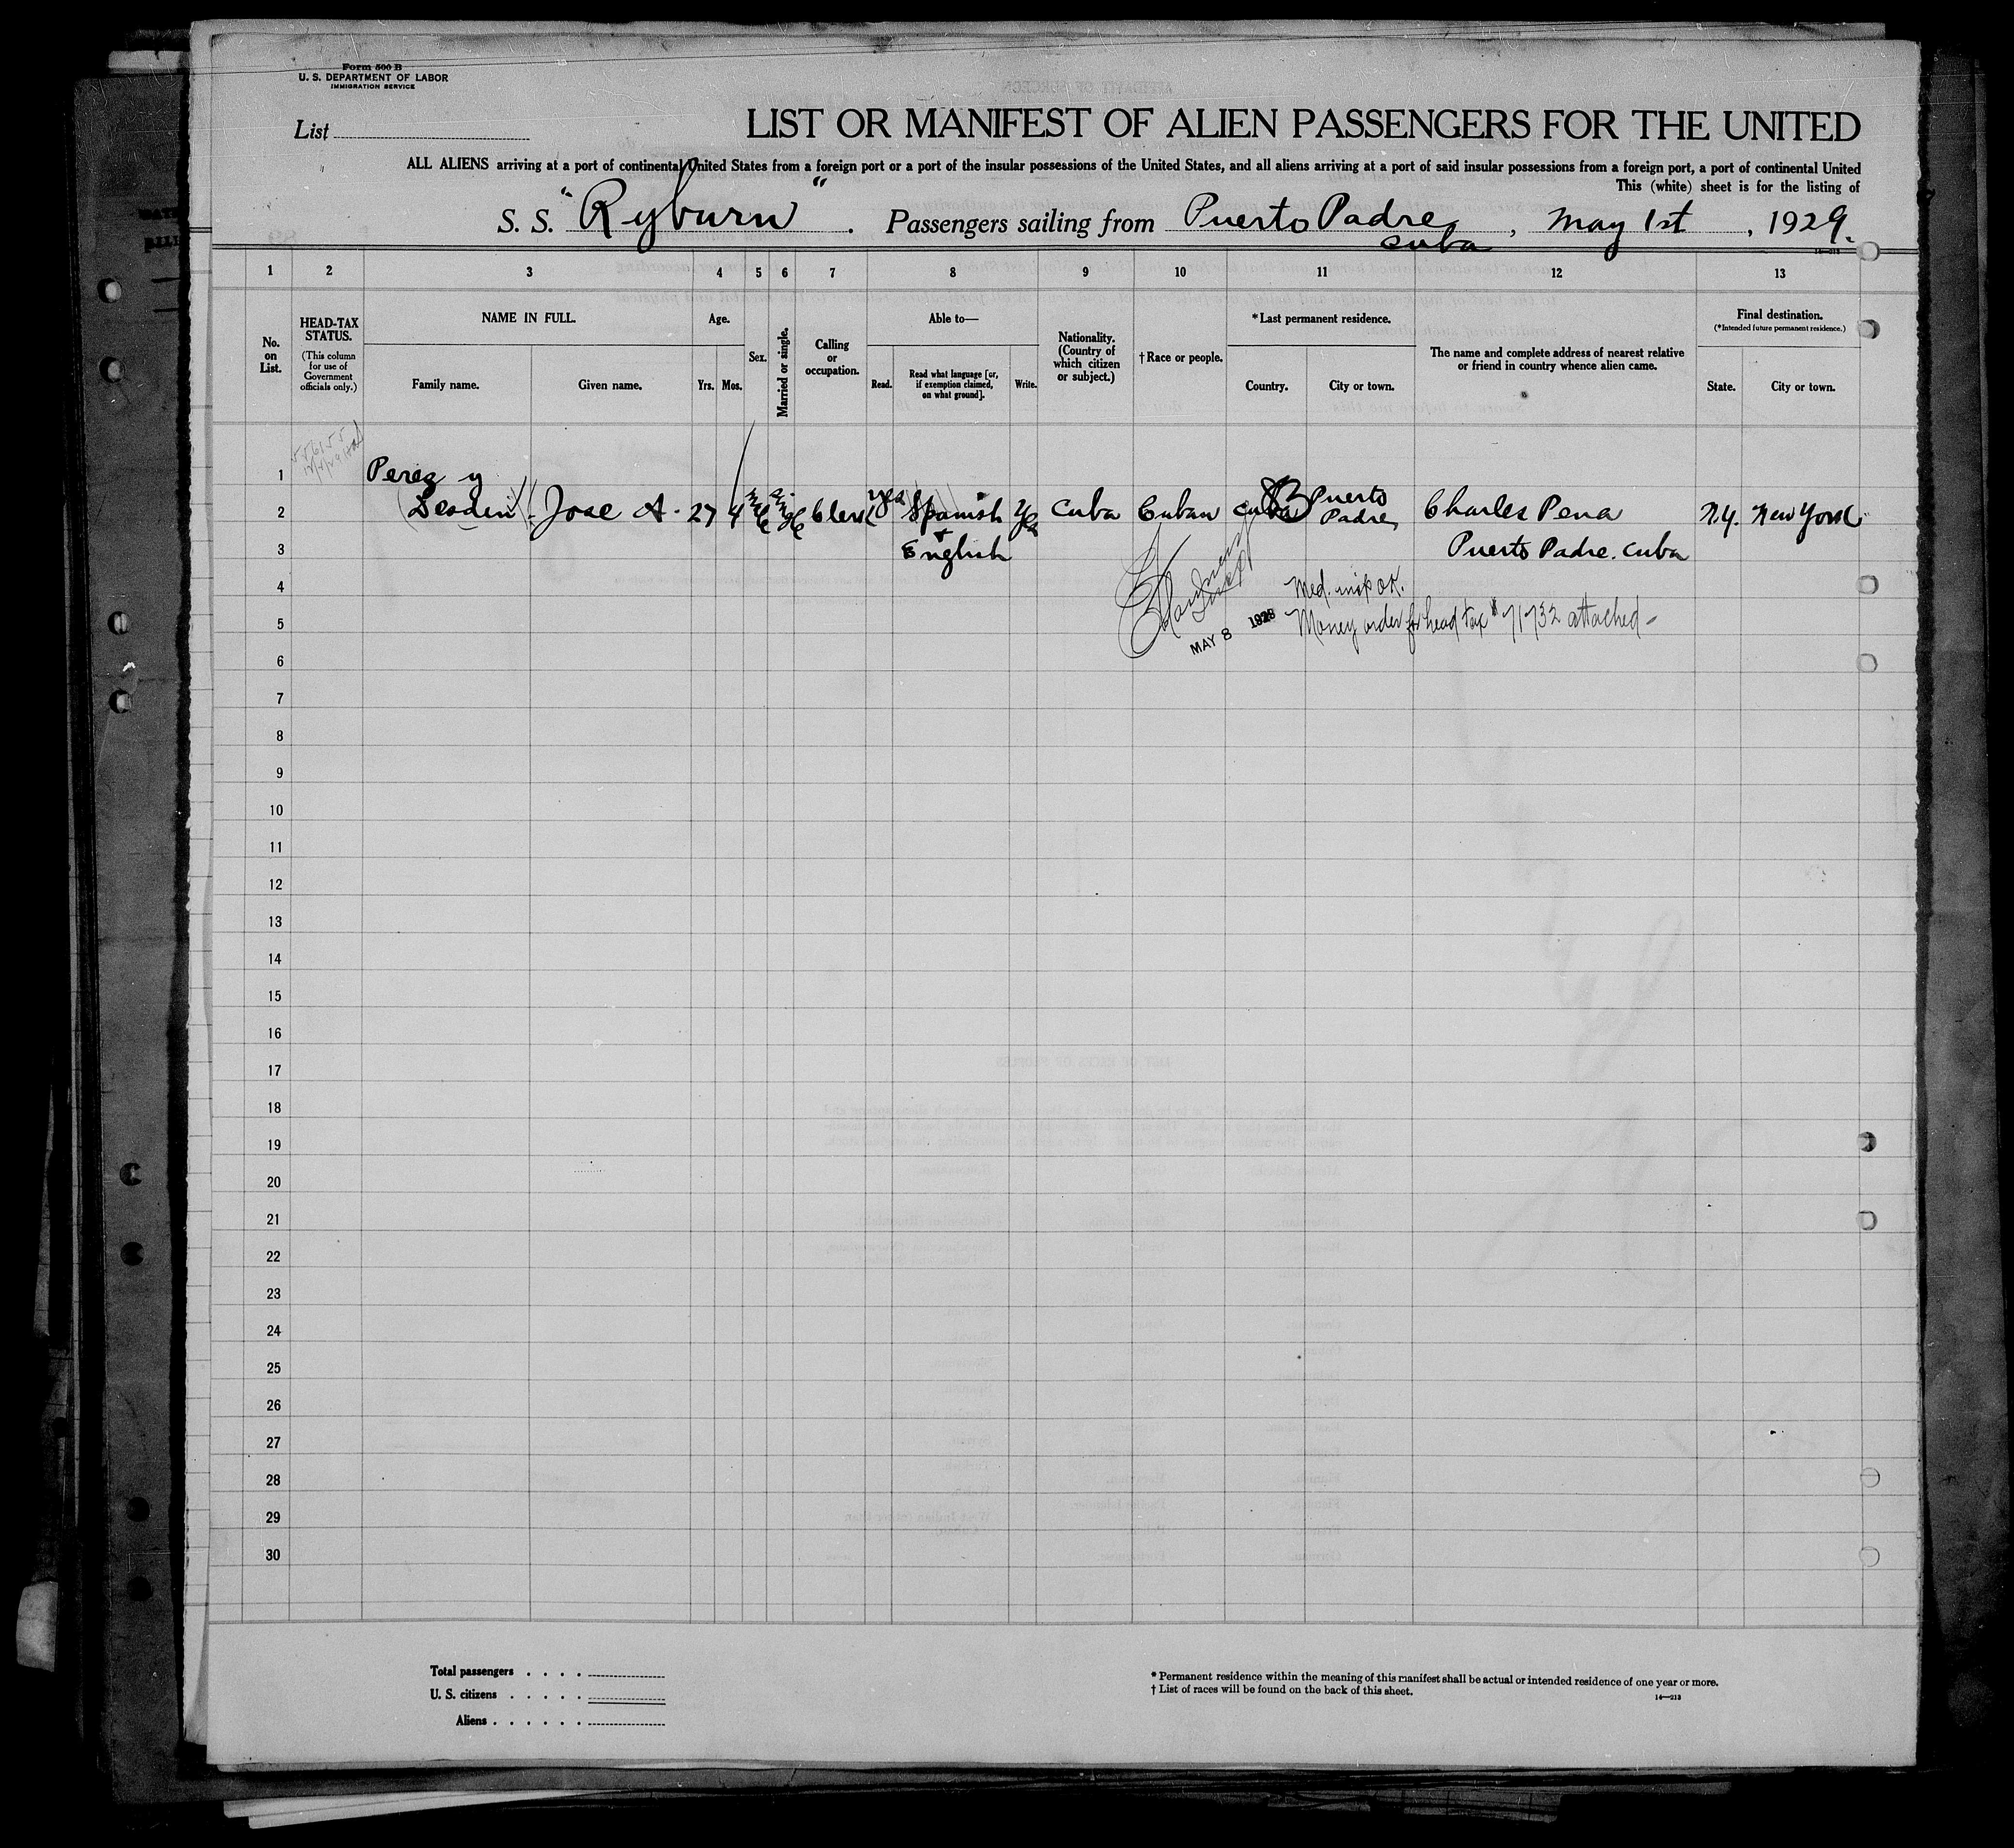 Form 500 B
U. S. DEPARTMENT OF LABOR
IMMIGRATION SERVICE
List
LIST OR MANIFEST OF ALIEN PASSENGERS FOR THE UNITED
ALL ALIENS arriving at a port of continental United States from a foreign port or a port of the insular possessions of the United States, and all aliens arriving at a port of said insular possessions from a foreign port, a port of continental United
This (white) sheet is for the listing of
S. S. "Ryburn". Passengers sailing from Puerto Padre, May 1st, 1929.
Cuba
14—213
1 2 3 4 5 6 7 8 9 10 11 12 13
No. on List.
HEAD-TAX STATUS.
(This column for use of Government officials only.)
NAME IN FULL.
Family name. Given name.
Age.
Yrs. Mos.
Sex.
Married or single.
Calling or occupation.
Able to—
Read. Read what language [or, if exemption claimed, on what ground]. Write.
Nationality. (Country of which citizen or subject.)
†Race or people.
*Last permanent residence.
Country. City or town.
The name and complete address of nearest relative or friend in country whence alien came.
Final destination.
(*Intended future permanent residence.)
State. City or town.
1 Perez y
2 Jose A. 27 4 Clerk yes Spanish Yes Cuba Cuban Cuba Puerto Padre Charles Pena N.Y. New York
3 + English Puerto Padre. Cuba
4 Med. insp OK.
5 MAY 8 Money order for head tax attached -
6
7
8
9
10
11
12
13
14
15
16
17
18
19
20
21
22
23
24
25
26
27
28
29
30
Total passengers . . . .
U. S. citizens . . . . .
Aliens . . . . . .
* Permanent residence within the meaning of this manifest shall be actual or intended residence of one year or more.
† List of races will be found on the back of this sheet.
14—213